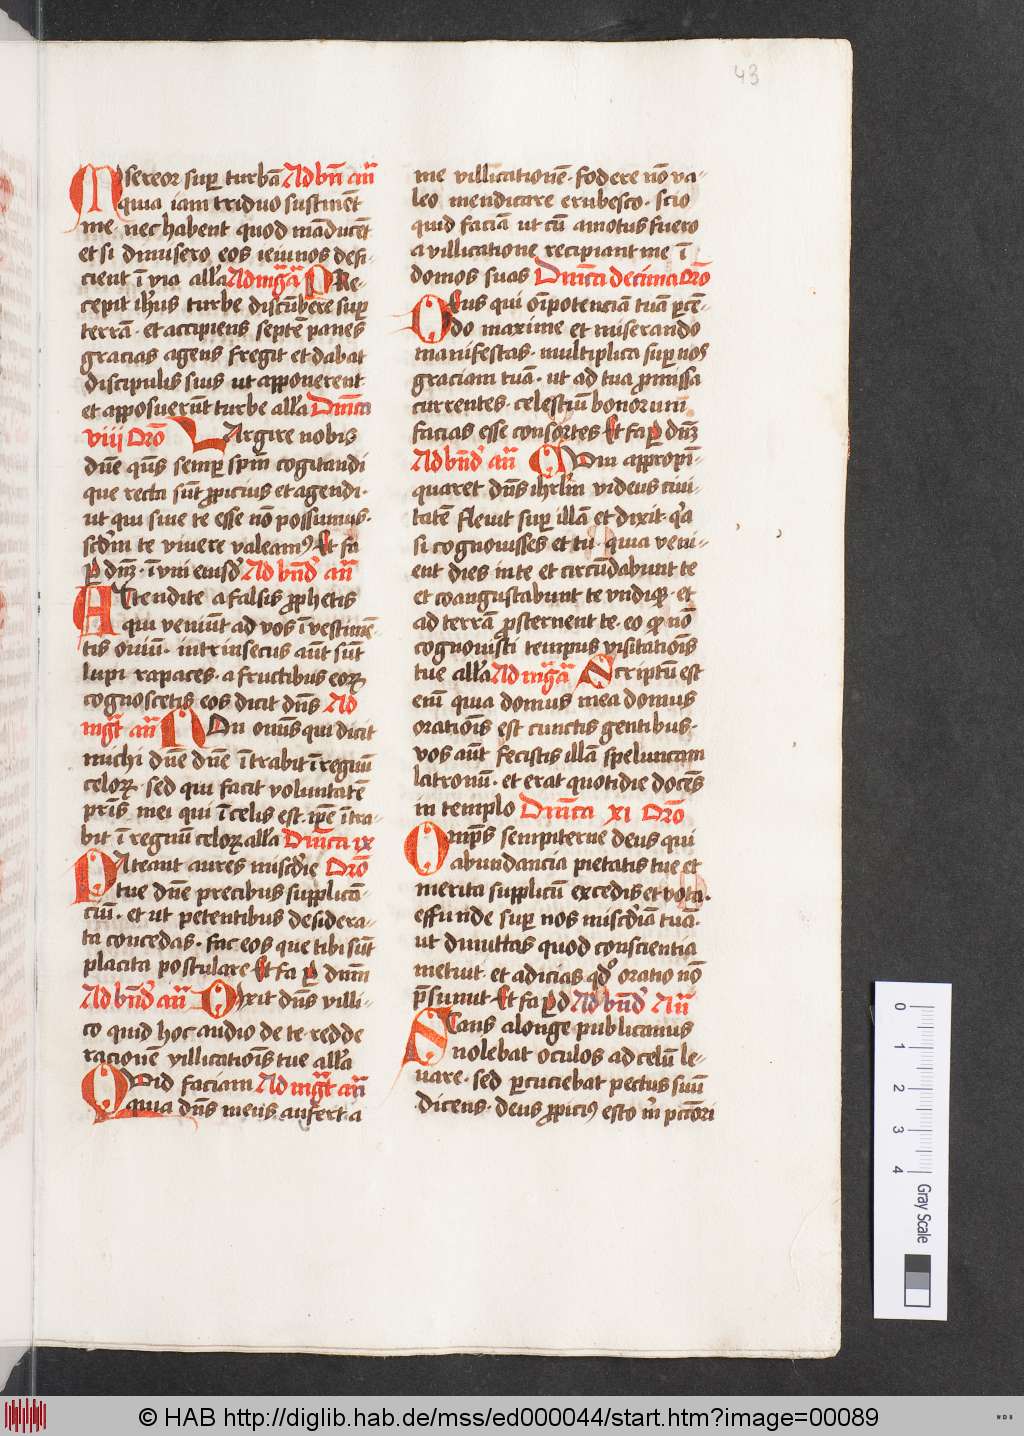 43
Misereor sup̄ turbā Ad bn̄ an̄
quia iam triduo sustinēt
me nec habent quod māducēt
et si dimisero eos ieiunos defi-
cient ī via all'a Ad mgᷓ a Re-
cepit ih'us turbe discūbere sup̄
terrā · et accipiens septē panes
gracias agens fregit et dabat
discipulis suis ut apponerent
et apposuerūt turbe all'a Dnīca
viii Orō Largire nobis
dn̄e qn̄s semp̄ spm̄ cogitandi
que recta sūt ꝓpicius et agendi ·
ut qui sine te esse nō possumus ·
scd'm te vivere valeamꝰ Et fa
ꝑ dn̄ꝫ · ī vni eiusd' Ad bn̄d' an̄
Attendite a falsis ꝓphetis
qui veniūt ad vos ī vestimē-
tis oviū · intrinsecus aūt sūt
lupi rapaces · a fructibus eoꝝ
cognoscetis eos dicit dn̄s Ad
mgᷓt an̄ Non omīs qui dicit
michi dn̄e dn̄e ītrabit ī regnū
celoꝝ · sed qui facit voluntatē
pr̄is mei qui ī celis est · ip̄e ītra-
bit ī regnū celoꝝ all'a Dnīca ix
Pateant aures misc̄die Orō
tue dn̄e precibus supplicā-
ciū · et ut petentibus desidera-
ta concedas · fac eos que tibi sūt
placita postulare Et fa ꝑ dnm̄
Ad bn̄d' an̄ Dixit dn̄s villi-
co quid hoc audio de te · redde
racionē villicationīs tue all'a
Quid faciam Ad mgᷓt an̄
quia dn̄s meus aufert a
me villicationē · fodere nō va-
leo mendicare erubesco · scio
quid faciā ut cū amotus fuero
a villicatione recipiant me ī
domos suas Dnīca decima orō
Deus qui om̄ipotenciā tuā ꝑcē-
do maxime et miserando
manifestas · multiplica sup̄ nos
graciam tuā · ut ad tua ꝓmissa
currentes · celestiū bonorum
facias esse consortes Et fa ꝑ dn̄ꝫ
Ad bn̄d' an̄ Cum appropī-
quaret dn̄s ihrl̄m videns civi-
tatē flevit sup̄ illā et dixit · q'a
si cognovisses et tu · quia veni-
ent dies in te et circūdabunt te
et coangustabunt te vndiqꝫ · et
ad terrā ꝓsternent te · eo qͦ nō
cognovisti tempus visitationīs
tue all'a Ad mgᷓa Scriptū est
enī quia domus mea domus
orationīs est cunctis gentibus ·
vos aūt fecistis illā speluncam
latronū · et erat quotidie docēs
in templo Dnīca xi Orō
Omp̄s sempiterne deus qui
abundancia pietatis tue et
merita supplicū excedis et vota ·
effunde sup̄ nos misc̄diā tuā ·
ut dimittas quod conscientia
metuit · et adicias qd' oratio nō
p̄sumit · Et fa ꝑ d Ad bn̄d' An̄
Stans a longe publicanus
nolebat oculos ad celū le-
vare · sed ꝑcuciebat pectus suū
dicens · deus ꝓpiciꝰ esto m̄ pctōri
0 1 2 3 4 Gray Scale
© HAB http://diglib.hab.de/mss/ed000044/start.htm?image=00089